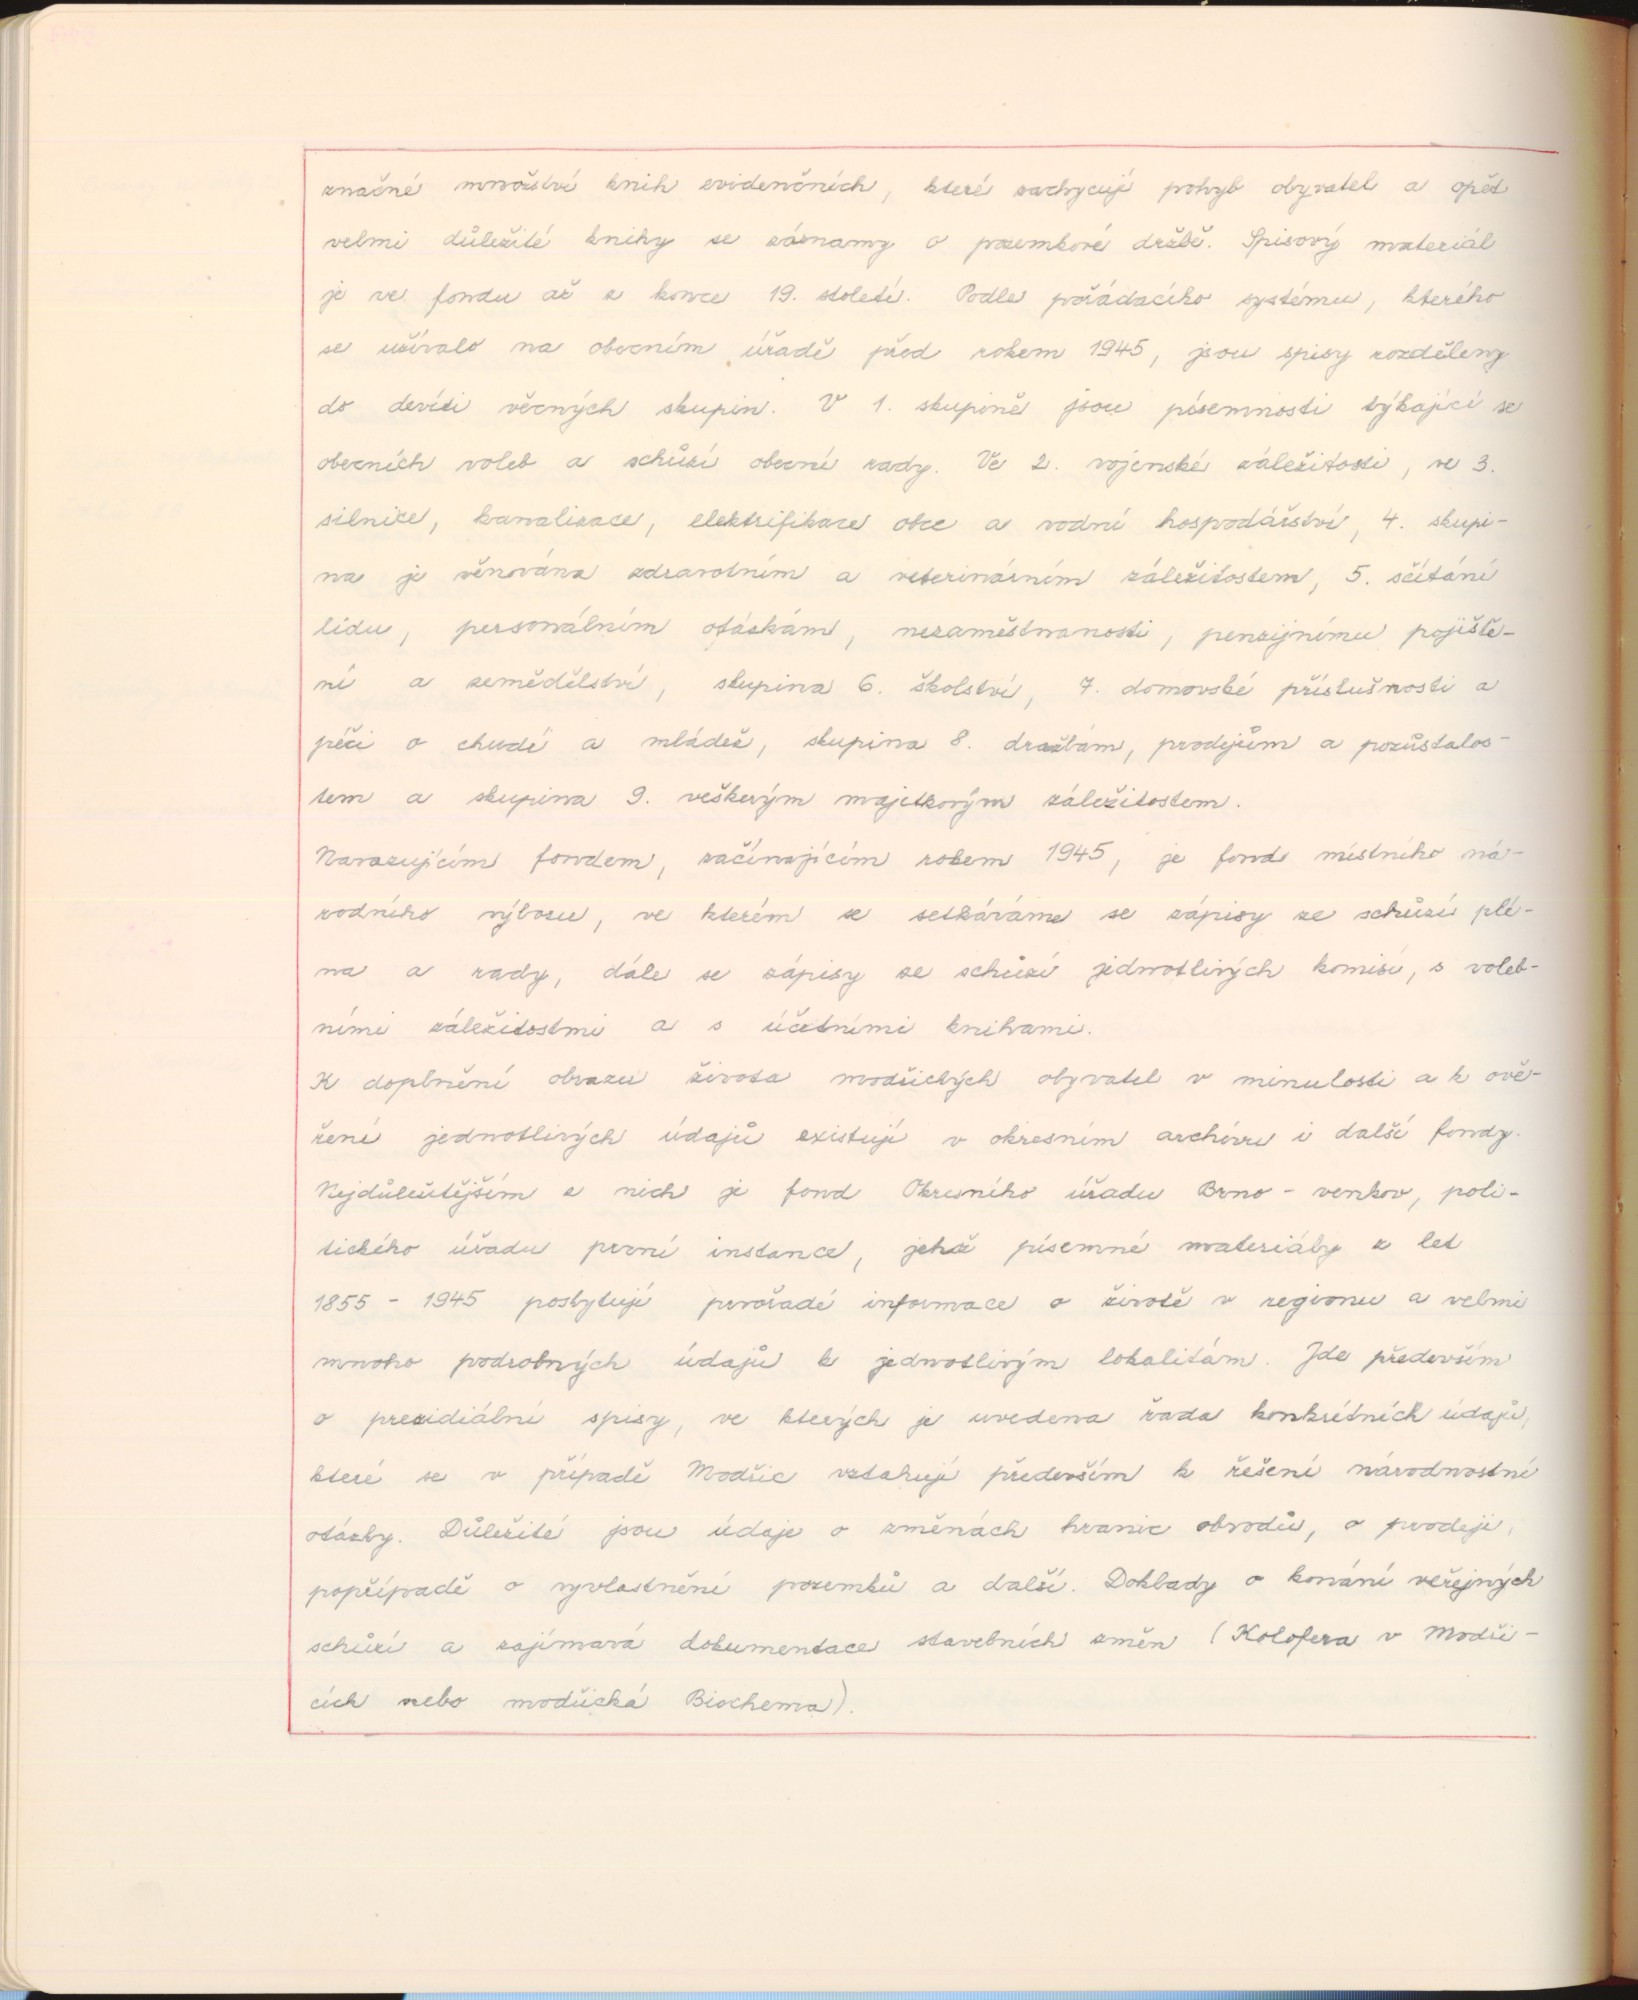 značné množství knih evidenčních, které zachycují pohyb obyvatel a opět
velmi důležité knihy se záznamy o pozemkové držbě. Spisový materiál
je ve fondu až z konce 19. století. Podle pořádacího systému, kterého
se užívalo na obecním úřadě před rokem 1945, jsou spisy rozděleny
do devíti věcných skupin. V 1. skupině jsou písemnosti týkající se
obecních voleb a schůzí obecní rady. Ve 2. vojenské záležitosti, ve 3.
silnice, kanalizace, elektrifikace obce a vodní hospodářství, 4. skupi-
na je věnována zdravotním a veterinárním záležitostem, 5. sčítání
lidu, personálním otázkám, nezaměstnanosti, penzijnímu pojiště-
ní a zemědělství, skupina 6. školství, 7. domovské příslušnosti a
péči o chudé a mládež, skupina 8. dražbám, prodejům a pozůstalos-
tem a skupina 9. veškerým majetkovým záležitostem.
Navazujícím fondem, začínajícím rokem 1945, je fond místního ná-
rodního výboru, ve kterém se setkáváme se zápisy ze schůzí plé-
na a rady, dále se zápisy ze schůzí jednotlivých komisí, s voleb-
ními záležitostmi a s účetními knihami.
K doplnění obrazu života modřických obyvatel v minulosti a k ově-
ření jednotlivých údajů existují v okresním archívu i další fondy.
Nejdůležitějším z nich je fond Okresního úřadu Brno - venkov, poli-
tického úřadu první instance, jehož písemné materiály z let
1855 - 1945 poskytují prvořadé informace o životě v regionu a velmi
mnoho podrobných údajů k jednotlivým lokalitám. Jde především
o prezidiální spisy, ve kterých je uvedena řada konkrétních údajů,
které se v případě Modřic vztahují především k řešení národnostní
otázky. Důležité jsou údaje o změnách hranic obvodů, o prodeji,
popřípadě o vyvlastnění pozemků a další. Doklady o konání veřejných
schůzí a zajímavá dokumentace stavebních změn (Kolofera v Modři-
cích nebo modřická Biochema).